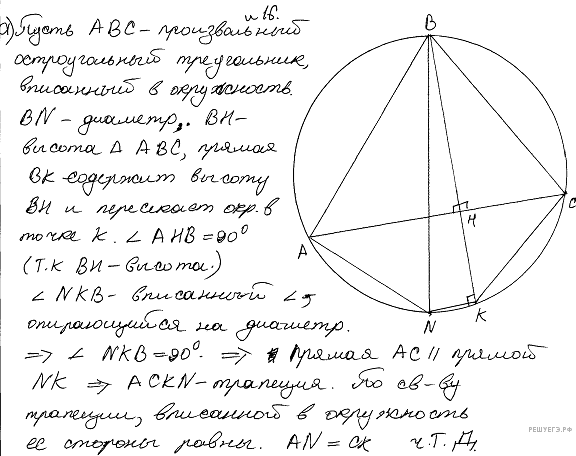 №16.
а) Пусть ABC – произвольный
остроугольный треугольник,
вписанный в окружность.
BN – диаметр,. BH –
высота Δ ABC, прямая
BK содержит высоту
BH и пересекает окр. в
точке K. ∠ AHB = 90°
(т.к BH – высота.)
∠ NKB – вписанный ∠,
опирающийся на диаметр.
=> ∠ NKB = 90°. => прямая AC || прямой
NK => ACKN – трапеция. По св-ву
трапеции, вписанной в окружность
ее стороны равны. AN = CK ч.т.д.
B
C
H
A
N
K
РЕШУЕГЭ.РФ